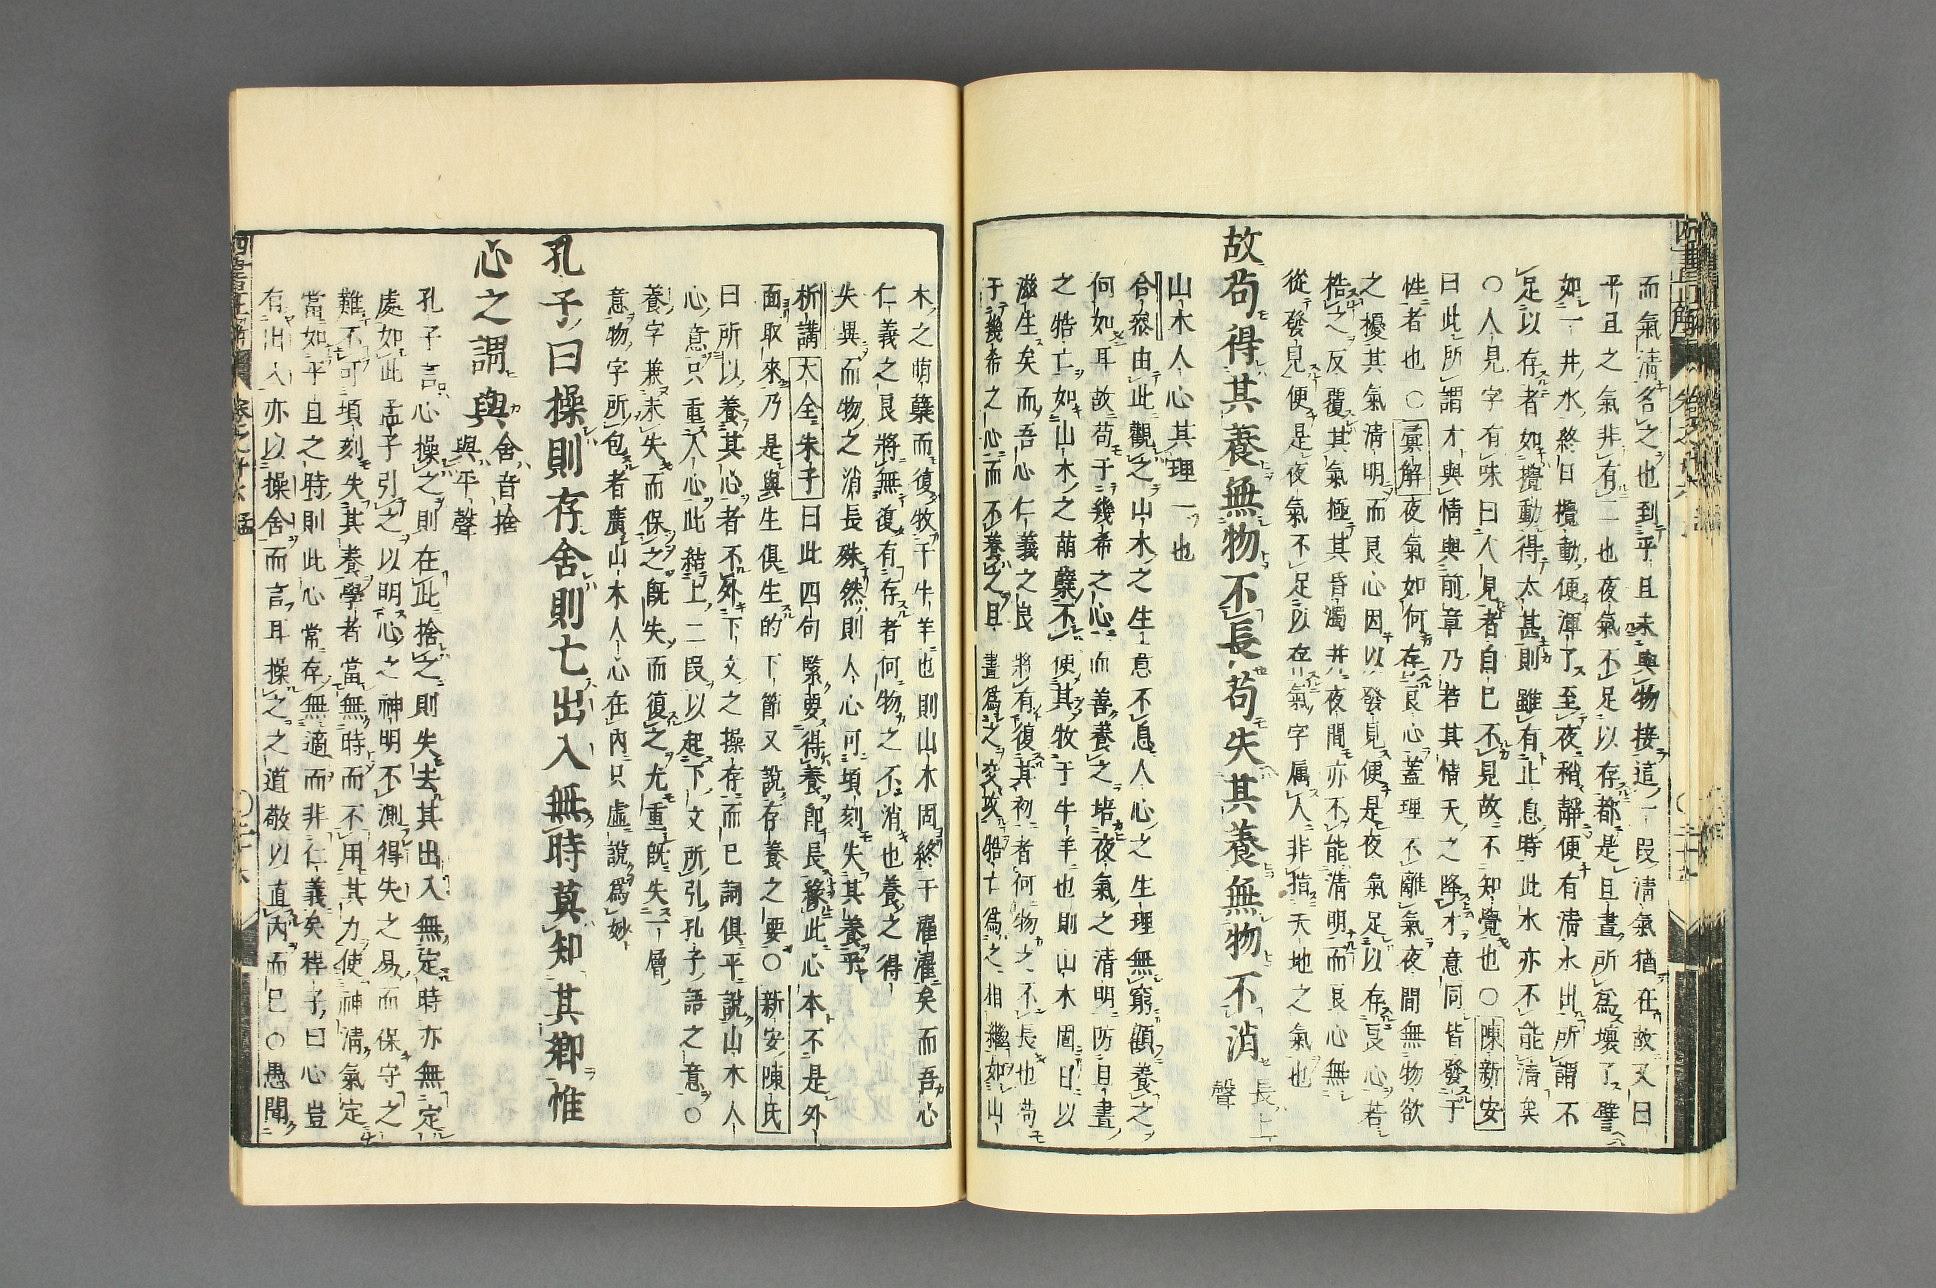 而氣清名之也到平旦未與物接這一段清氣猶在故又曰
平旦之氣非有二也夜氣不足以存都是旦晝所爲壞了譬
如一井水終日攪動便渾了至夜稍靜便有清水出所謂不
足以存者如攪動得太甚則雖有止息時此水亦不能清矣
○人見字有味曰人見者自己不見故不知覺也○陳新安
曰此所謂才與情與前章乃若其情天之降才意同皆發于
性者也○彙解夜氣如何存良心蓋理不離氣夜間無物欲
之擾其氣清明而良心因以發見便是夜氣足以存良心若
梏之反覆其氣極其昏濁并夜間亦不能清明而良心無
從發見便是夜氣不足以存氣字属人非指天地之氣也
故苟得其養無物不長苟失其養無物不消長上聲
山木人心其理一也
合叅由此觀之山木之生意不息人心之生理無窮顧養之
何如耳故苟于幾希之心而善養之培夜氣之清明防旦晝
之牿亡如山木之萠蘖不使其牧于牛羊也則山木固日以
滋生矣而吾心仁義之良將有復其初者何物之不長也苟
于幾希之心而不養之旦晝爲之交攻牿亡爲之相繼如山
木之萌蘖而復牧于牛羊也則山木固終于濯濯矣而吾心
仁義之良將無復有存者何物之不消也養之得
失異而物之消長殊然則人心可頃刻失其養乎
析講大全朱子曰此四句緊要得養即長縁此心本不是外
面取來乃是與生俱生的下節又說存養之要○新安陳氏
曰所以養其心者不外下文之操存而已詞俱平說山木人
心意只重人心此結上二段以起下文所引孔子語之意○
養字兼未失而保之既失而復之尤重既失一層
意物字所包者廣山木人心在內只虛說爲妙
孔子曰操則存舍則亡出入無時莫知其鄉惟
心之謂與舍音捨與平聲
孔子言心操之則在此捨之則失去其出入無定時亦無定
處如此孟子引之以明心之神明不測得失之易而保守之
難不可頃刻失其養學者當無時而不用其力使神清氣定
當如平旦之時則此心常存無適而非仁義矣程子曰心豈
有出入亦以操舍而言耳操之之道敬以直內而已○愚聞